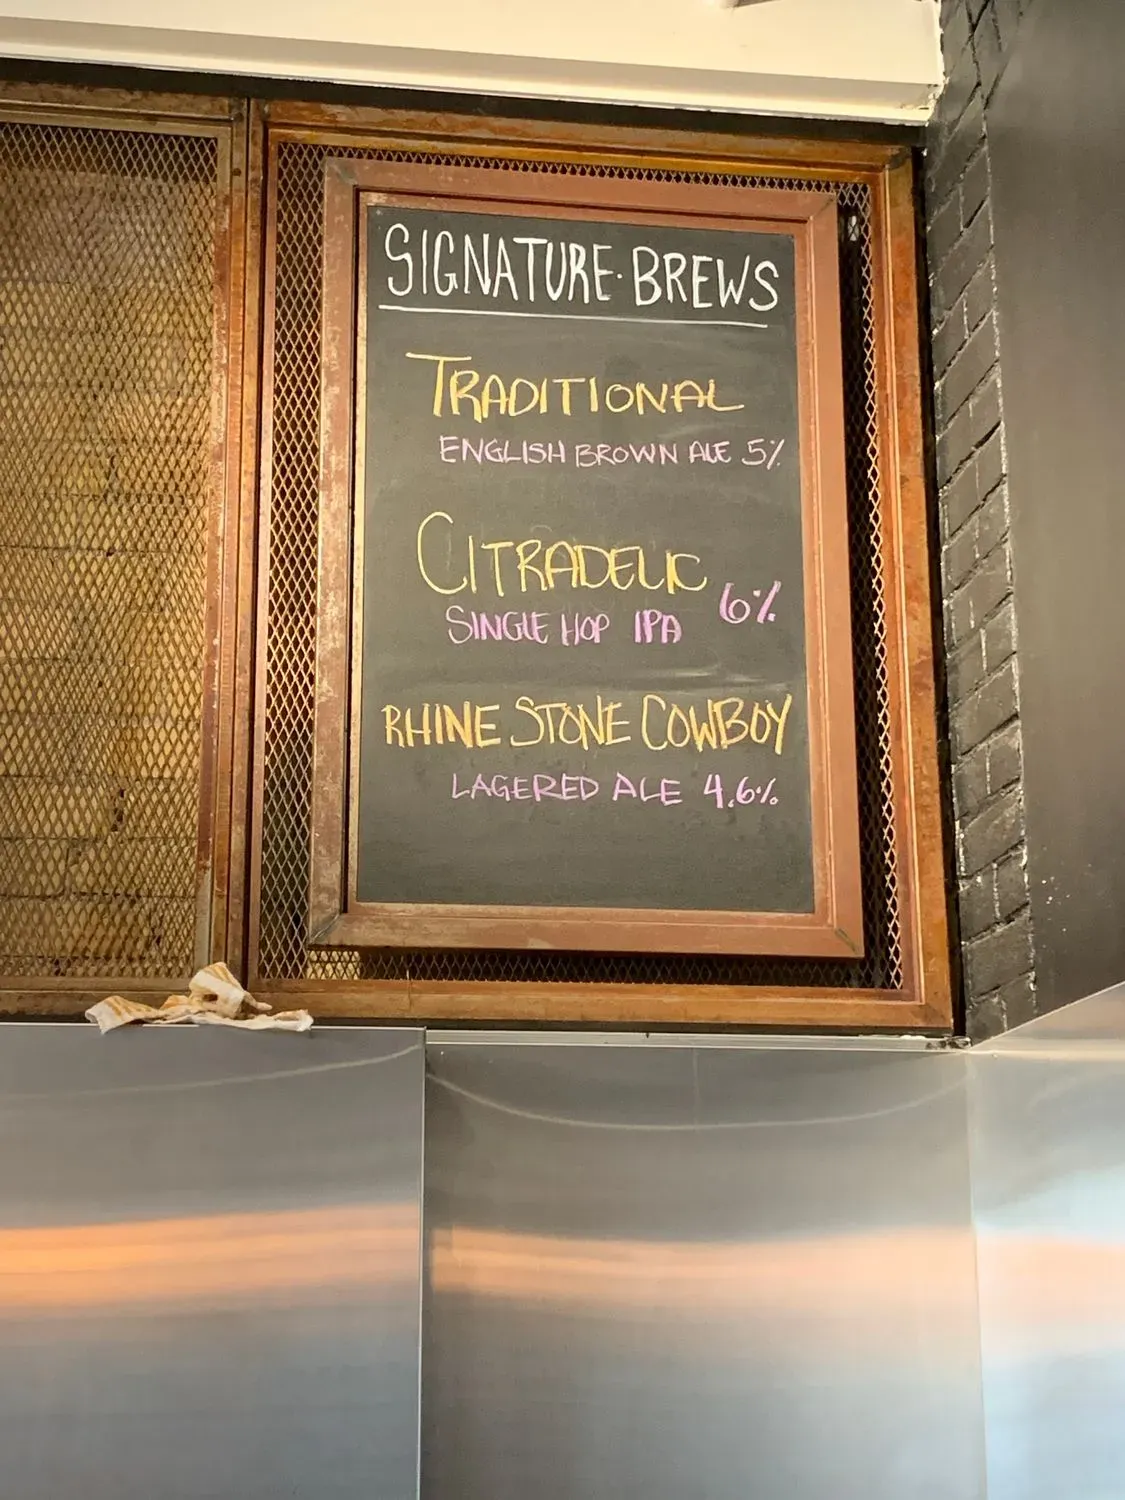 SIGNATURE · BREWS
TRADITIONAL
ENGLISH BROWN ALE 5%
CITRADELIC
SINGLE HOP IPA 6%
RHINE STONE COWBOY
LAGERED ALE 4.6%